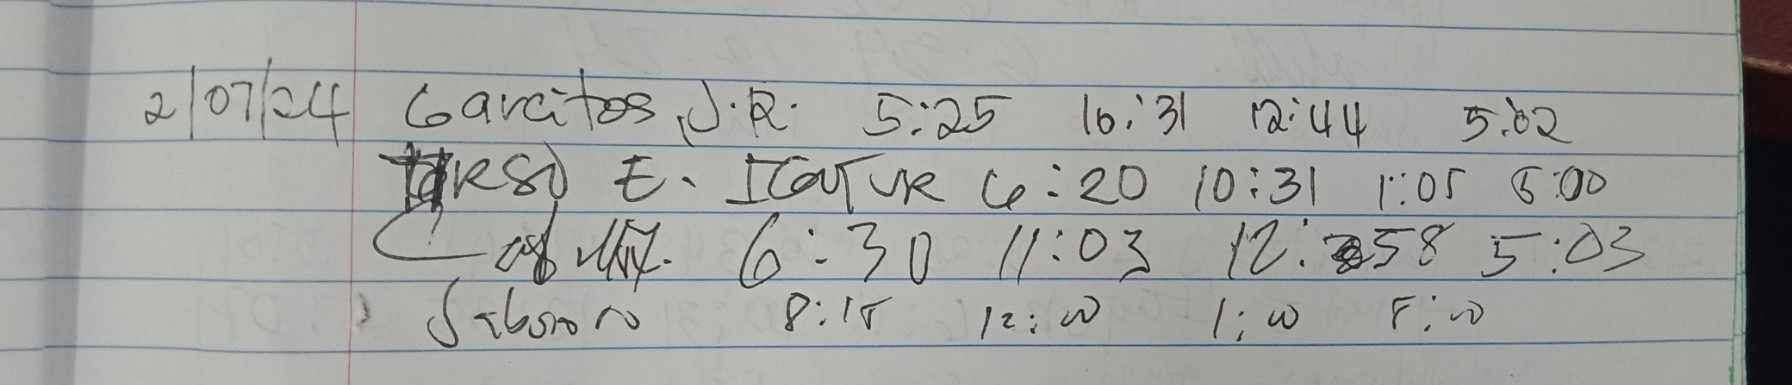 2/07/24 Garcitos, J.R. 5:25 10:31 12:44 5:02
E. 6:20 10:31 1:05 5:00
6:30 11:03 12:58 5:03
8:15 12:00 1:00 5:00